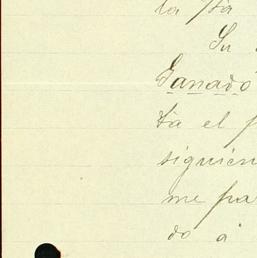 la
Su
Ganado
ta el
siguien
me pa
do á